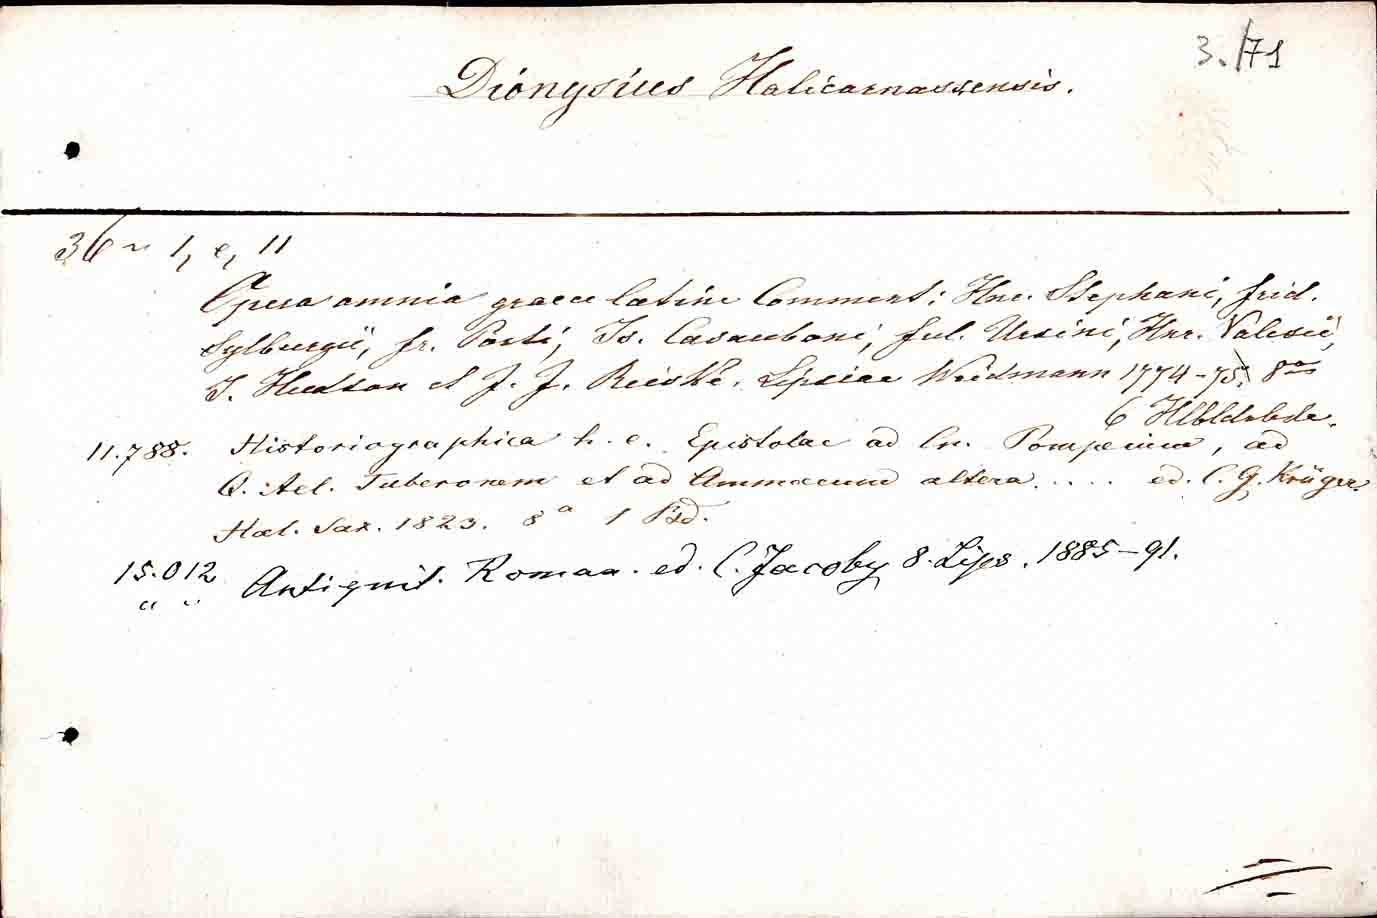 3./71
Dionysius Halicarnassensis.
36 ~ 1, e, 11
Opera omnia graece latine Comment: Hnr. Stephani, frid.
Sylburgii, fr. Porti, Is. Casauboni, ful. Ursini, Hnr. Valesii,
J. Hudson et J. J. Reiské. Lipsiae Weidmann 1774-75. 8ᵒ
6 Hlbldrbde.
11.788. Historiographica h. e. Epistolae ad Cn. Pompeium, ad
Q. Ael. Tuberonem et ad Ammaeum altera .... ed. C. G. Krüger.
Hal. Sax. 1823. 8ᵒ 1 Bd.
15.012 Antiquit. Roman. ed. C. Jacoby 8. Lips. 1885-91.
" "